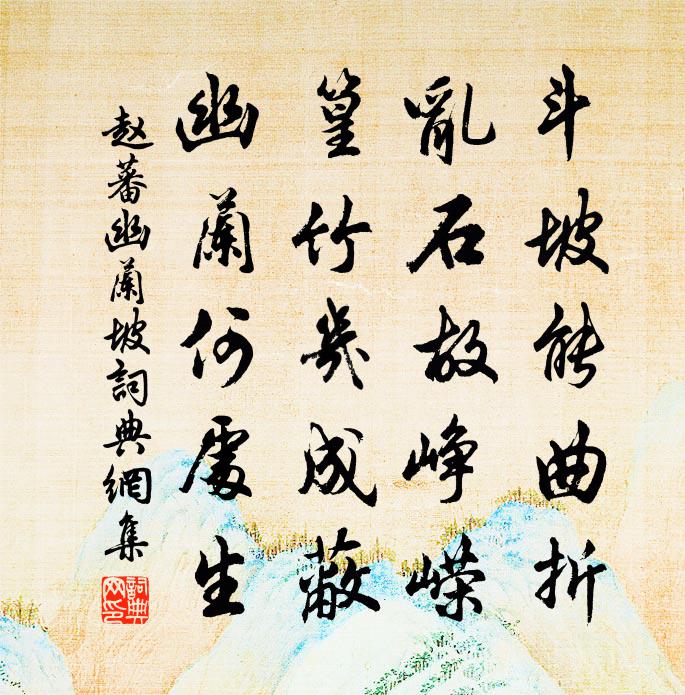 斗坡能曲折
亂石故峥嵘
篁竹幾成蔽
幽蘭何處生
赵蕃幽蘭坡詞典網集